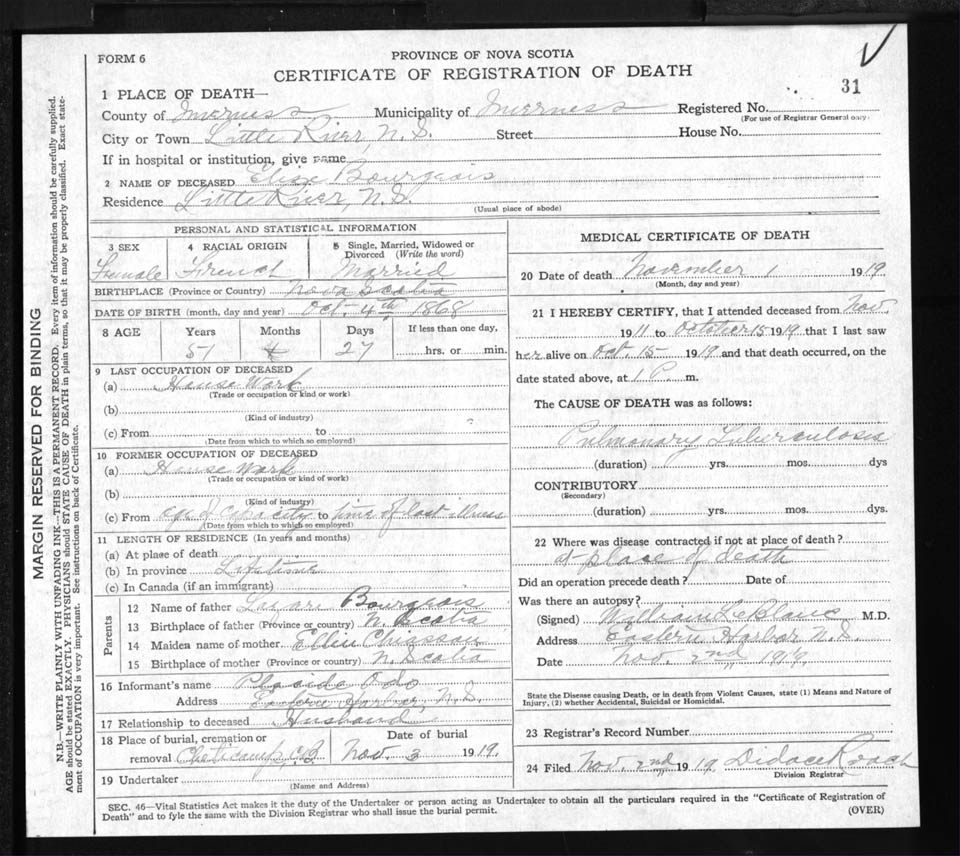 FORM 6
PROVINCE OF NOVA SCOTIA
CERTIFICATE OF REGISTRATION OF DEATH
31
1 PLACE OF DEATH—
County of Inverness Municipality of Inverness Registered No.
(For use of Registrar General only.
City or Town Little River, N.S. Street House No.
If in hospital or institution, give name
2 NAME OF DECEASED Elise Bourgeois
Residence Little River, N.S.
(Usual place of abode)
PERSONAL AND STATISTICAL INFORMATION
3 SEX 4 RACIAL ORIGIN 5 Single, Married, Widowed or Divorced (Write the word)
Female French Married
BIRTHPLACE (Province or Country) Nova Scotia
DATE OF BIRTH (month, day and year) Oct. 4th 1868
8 AGE Years Months Days If less than one day,
51 27 hrs. or min.
9 LAST OCCUPATION OF DECEASED
(a) House Work
(Trade or occupation or kind or work)
(b)
(Kind of industry)
(c) From to
(Date from which to which so employed)
10 FORMER OCCUPATION OF DECEASED
(a) House Work
(Trade or occupation or kind of work)
(b)
(Kind of industry)
(c) From age of capacity to time of last illness
(Date from which to which so employed)
11 LENGTH OF RESIDENCE (In years and months)
(a) At place of death
(b) In province Lifetime
(c) In Canada (if an immigrant)
Parents
12 Name of father Bourgeois
13 Birthplace of father (Province or country) N. Scotia
14 Maiden name of mother Ellen Chiasson
15 Birthplace of mother (Province or country) N. Scotia
16 Informant's name Placide
Address Eastern Harbor, N.S.
17 Relationship to deceased Husband
18 Place of burial, cremation or removal Date of burial
Cheticamp, C.B. Nov. 3 1919.
19 Undertaker
(Name and Address)
MEDICAL CERTIFICATE OF DEATH
20 Date of death November 1 1919
(Month, day and year)
21 I HEREBY CERTIFY, that I attended deceased from Nov.
1911 to October 15 1919, that I last saw
her alive on Oct. 15 1919 and that death occurred, on the
date stated above, at 1 P. m.
The CAUSE OF DEATH was as follows:
Pulmonary Tuberculosis
(duration) yrs. mos. dys
CONTRIBUTORY
(Secondary)
(duration) yrs. mos. dys.
22 Where was disease contracted if not at place of death?
at place of death
Did an operation precede death? Date of
Was there an autopsy?
(Signed) William LeBlanc M.D.
Address Eastern Harbor N.S.
Date Nov. 2nd, 1919.
State the Disease causing Death, or in death from Violent Causes, state (1) Means and Nature of
Injury, (2) whether Accidental, Suicidal or Homicidal.
23 Registrar's Record Number
24 Filed Nov. 2nd 1919, Didace Roach
Division Registrar
SEC. 46—Vital Statistics Act makes it the duty of the Undertaker or person acting as Undertaker to obtain all the particulars required in the "Certificate of Registration of
Death" and to fyle the same with the Division Registrar who shall issue the burial permit.
(OVER)
MARGIN RESERVED FOR BINDING
N.B.—WRITE PLAINLY WITH UNFADING INK—THIS IS A PERMANENT RECORD. Every item of information should be carefully supplied.
AGE should be stated EXACTLY. PHYSICIANS should STATE CAUSE OF DEATH in plain terms, so that it may be properly classified. Exact state-
ment of OCCUPATION is very important. See instructions on back of Certificate.